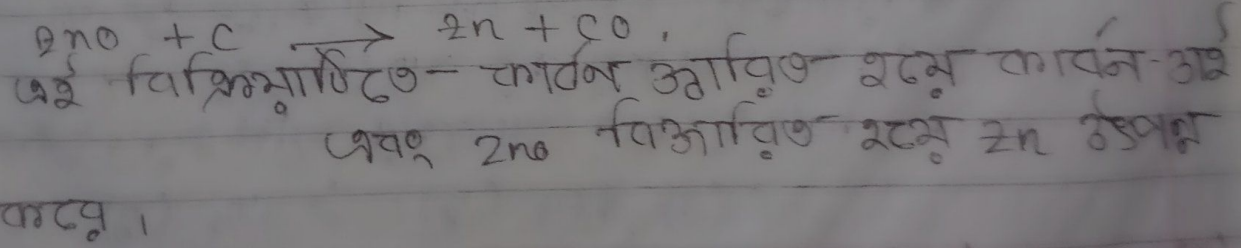 ZnO + C → Zn + CO,
এই বিক্রিয়াটিতে- কার্বন জারিত হয়ে কার্বন-অই
এবং ZnO বিজারিত হয়ে Zn উৎপন্ন
করে।